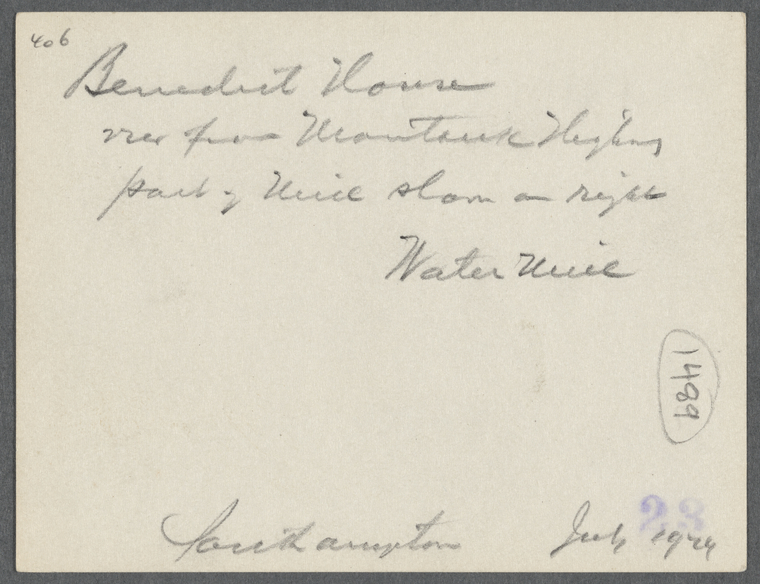 406
Benedict House
view from Montauk Highway
part of Mill shown on right
Water Mill
1489
23
Southampton July 1924